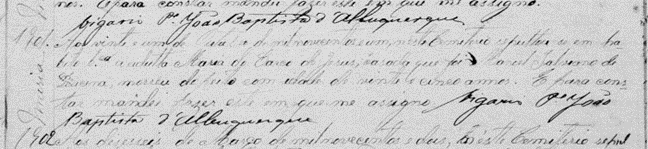 nos. E para constar mandei fazer este em que me assigno.
Vigario Pe. João Baptista d'Albuquerque
1901. Aos vinte e um de de mil novecentos e um, neste Cemiterio sepultou-se em
Maria do Carmo de Jesus, casada que foi Manoel Salviano de
morreu de parto com idade de vinte e cinco annos. E para cons-
tar mandei fazer este em que me assigno Vigario Pe. João
Baptista d'Albuquerque
1902 Aos dezeseis de Março de mil novecentos e dois, neste Cemiterio sepul